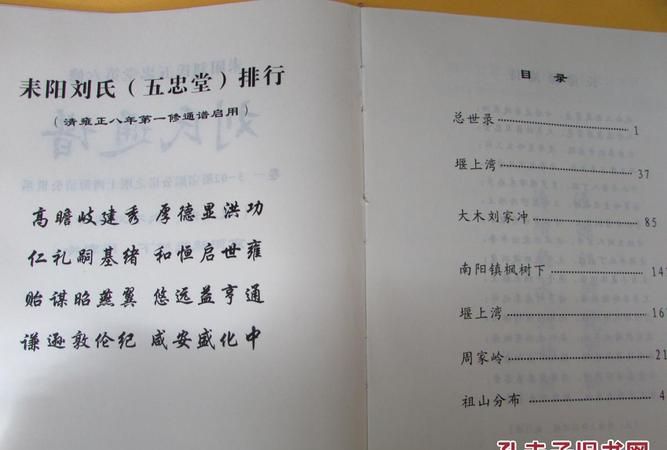 耒阳刘氏（五忠堂）排行
（清雍正八年第一修通谱启用）
高瞻岐建秀 厚德显洪功
仁礼嗣基绪 和恒启世雍
贻谋昭燕翼 悠远益亨通
谦逊敦伦纪 咸安盛化中
目录
总世录……………………1
堰上湾……………………37
大木刘家冲………………85
南阳镇枫树下……………14
堰上湾……………………16
周家岭……………………21
祖山分布…………………4
孔夫子旧书网